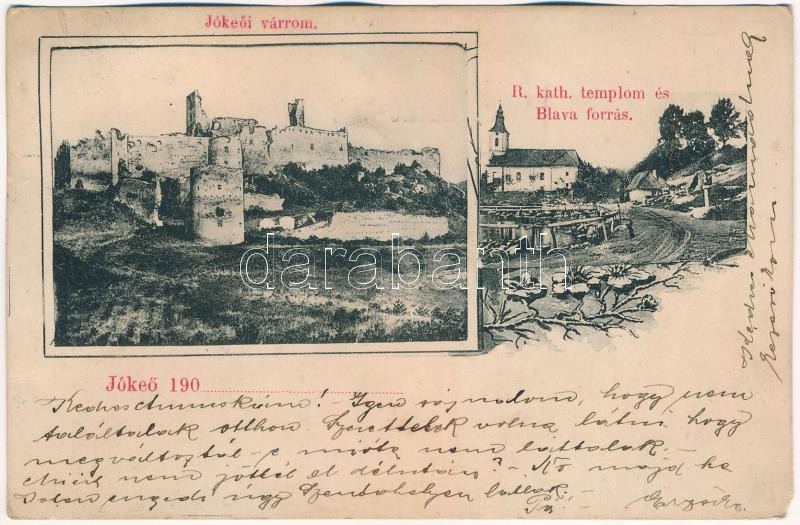 Jókeői várrom.
R. kath. templom és
Blava forrás.
darabanth
Jókeő 190
Kedves Annuskám! - Igen sajnálom, hogy nem
találtalak otthon. Szerettelek volna látni, hogy
megváltoztál-e mióta nem láttalak. -
nem jöttél el délután? - No majd ha
Isten engedi úgy Szentahelyen látlak.
Pá
Kedves